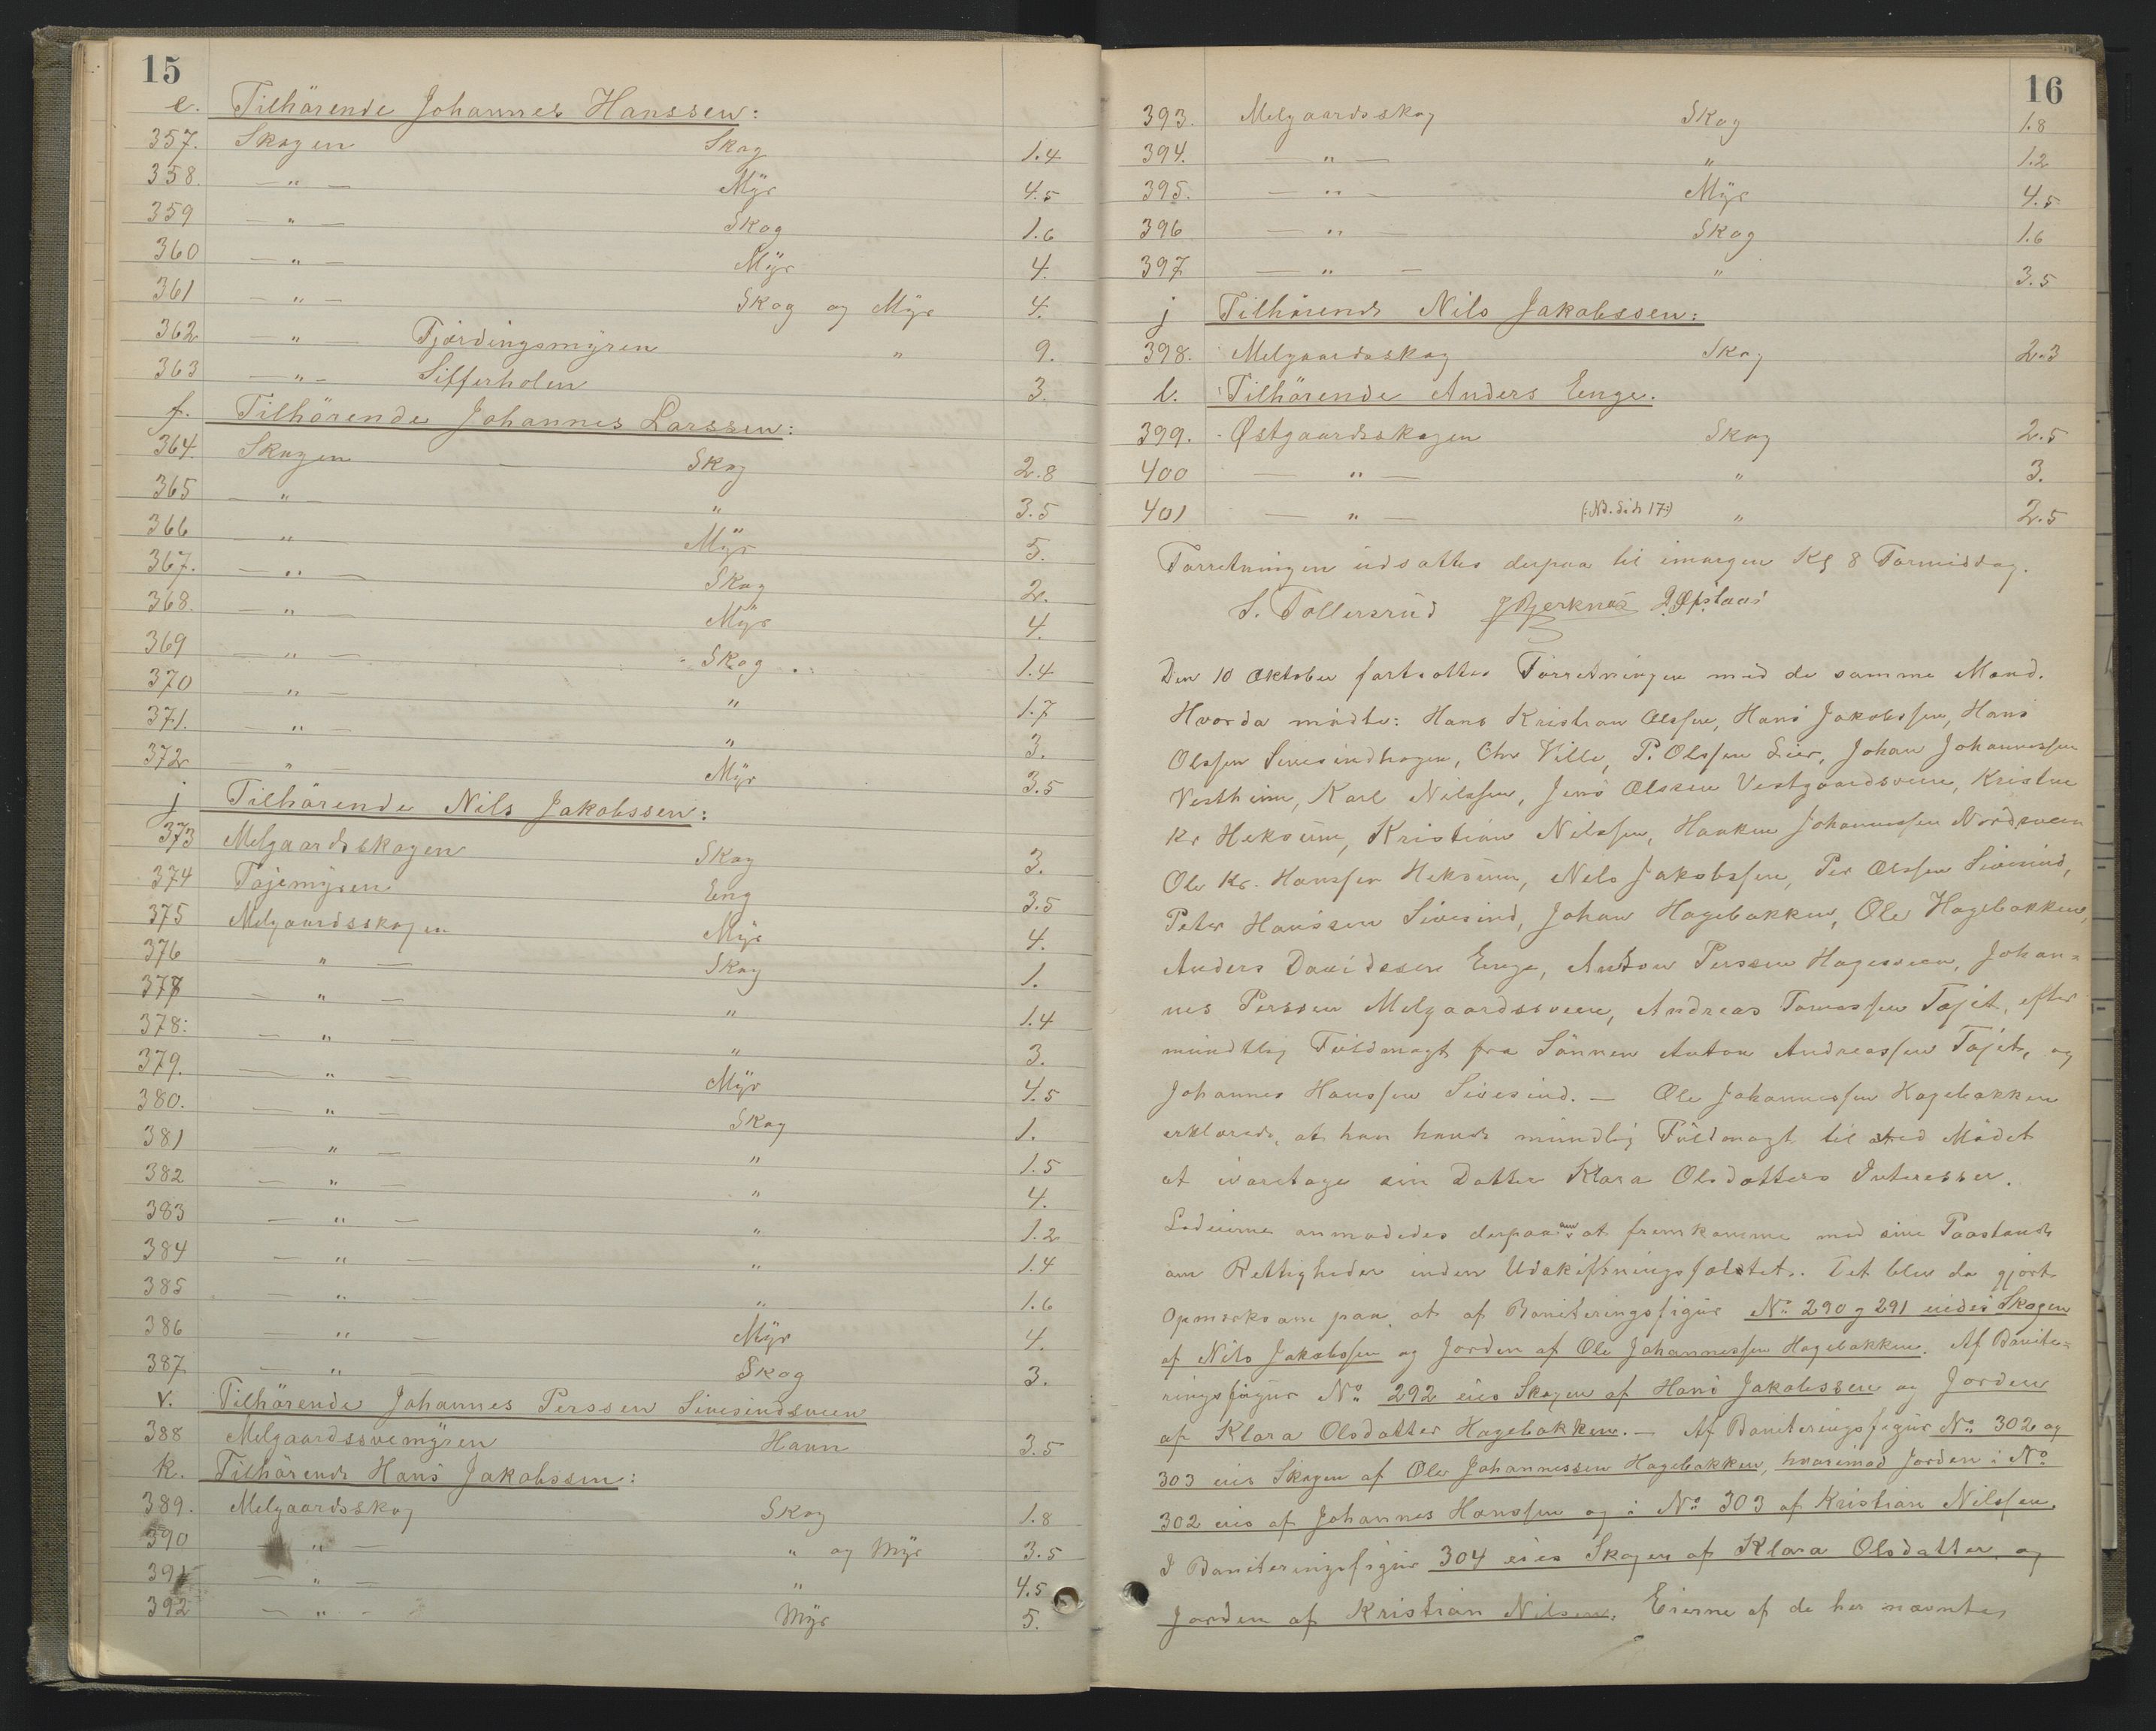 15
e. Tilhörende Johannes Hanssen:
357. Skogen Skog 1.4
358. — " — Myr 4.5
359 — " — Skog 1.6
360 — " — Myr 4.
361 — " — Skog og Myr 4.
362 — " — Fjordingsmyren " 9.
363 — " — Sifferholen 3.
f. Tilhörende Johannes Larssen:
364. Skogen — Skog 2.8
365 — " — " 3.5
366 — " — Myr 5.
367. — " — Skog 2.
368. — " — Myr 4.
369 — " — Skog 1.4
370 — " — " 1.7
371. — " — " 3.
372 — " — Myr 3.5
j Tilhörende Nils Jakobssen:
373 Melgaardsskogen Skog 3.
374 Tajemyren Eng 3.5
375 Melgaardsskogen Myr 4.
376 — " — Skog 1.
377 — " — " 1.4
378: — " — " 3.
379. — " — Myr 4.5
380. — " — Skog 1.
381 — " — " 1.5
382 — " — " 4.
383 — " — " 1.2
384 — " — " 1.4
385 — " — " 1.6
386 — " — Myr 4.
387 — " — Skog 3.
v. Tilhörende Johannes Perssen Sivesindsveen
388 Melgaardssvemyren Havn 3.5
k. Tilhörende Hans Jakobssen:
389. Melgaardsskog Skog 1.8
390 — " — " og Myr 3.5
391 — " — " 4.5
392 — " — Myr 5.
16
393. Melgaardsskog Skog 1.8
394. — " — " 1.2
395. — " — Myr 4.5
396 — " — Skog 1.6
397 — " — " 3.5
j Tilhörende Nils Jakobssen:
398. Melgaardsskog Skog 2.3
l. Tilhörende Anders Enge.
399. Østgaardsskogen Skog 2.5
400 — " — " 3.
401 — " — (: Nd. Side 17:) " 2.5
Forretningen udsattes derpaa til imorgen Kl 8 Formiddag.
S. Tollersrud J Bjerknes
Den 10 Oktober fortsattes Forretningen med de samme Mænd.
Hvorda mødte: Hans Kristian Olssen, Hans Jakobssen, Hans
Olssen Sivesindhagen, Chr Ville, P. Olssen Lier, Johan Johannessen
Vestheim, Karl Nilssen, Jens Olssen Vestgaardsveen, Kristen
Kr Heksum, Kristian Nilssen, Haaken Johannessen Nordsveen
Ole Kr. Hanssen Heksum, Nils Jakobssen, Per Olssen Sivesind,
Peter Hanssen Sivesind, Johan Hagebakken, Ole Hagebakken,
Anders Davidssen Enge, Anton Perssen Hagesveen, Johan=
nes Perssen Melgaardssveen, Andreas Tomassen Tajet, efter
mundtlig Fuldmagt fra Sönnen Anton Andreassen Tajet, og
Johannes Hanssen Sivesind. — Ole Johannessen Hagebakken
erklærede, at han havde mundlig Fuldmagt til ved Mödet
at ivaretage sin Datter Klara Olsdatters Interesser.
Lodeierne anmodedes derpaa om at fremkomme med sine Paastande
om Rettigheder inden Udskiftningsfeltet. Det blev da gjort
Opmærksom paa, at af Boniteringsfigur No 290 og 291 eiedes Skogen
af Nils Jakobssen og Jorden af Ole Johannessen Hagebakken. Af Bonite=
ringsfigur No 292 eies Skogen af Hans Jakobssen og Jorden
af Klara Olsdatter Hagebakken. — Af Boniteringsfigur No 302 og
303 eies Skogen af Ole Johannessen Hagebakken, hvorimod Jorden i No
302 eies af Johannes Hanssen og i No 303 af Kristian Nilssen.
I Boniteringsfigur 304 eies Skogen af Klara Olsdatter og
Jorden af Kristian Nilsen. Eierne af de her nævnte